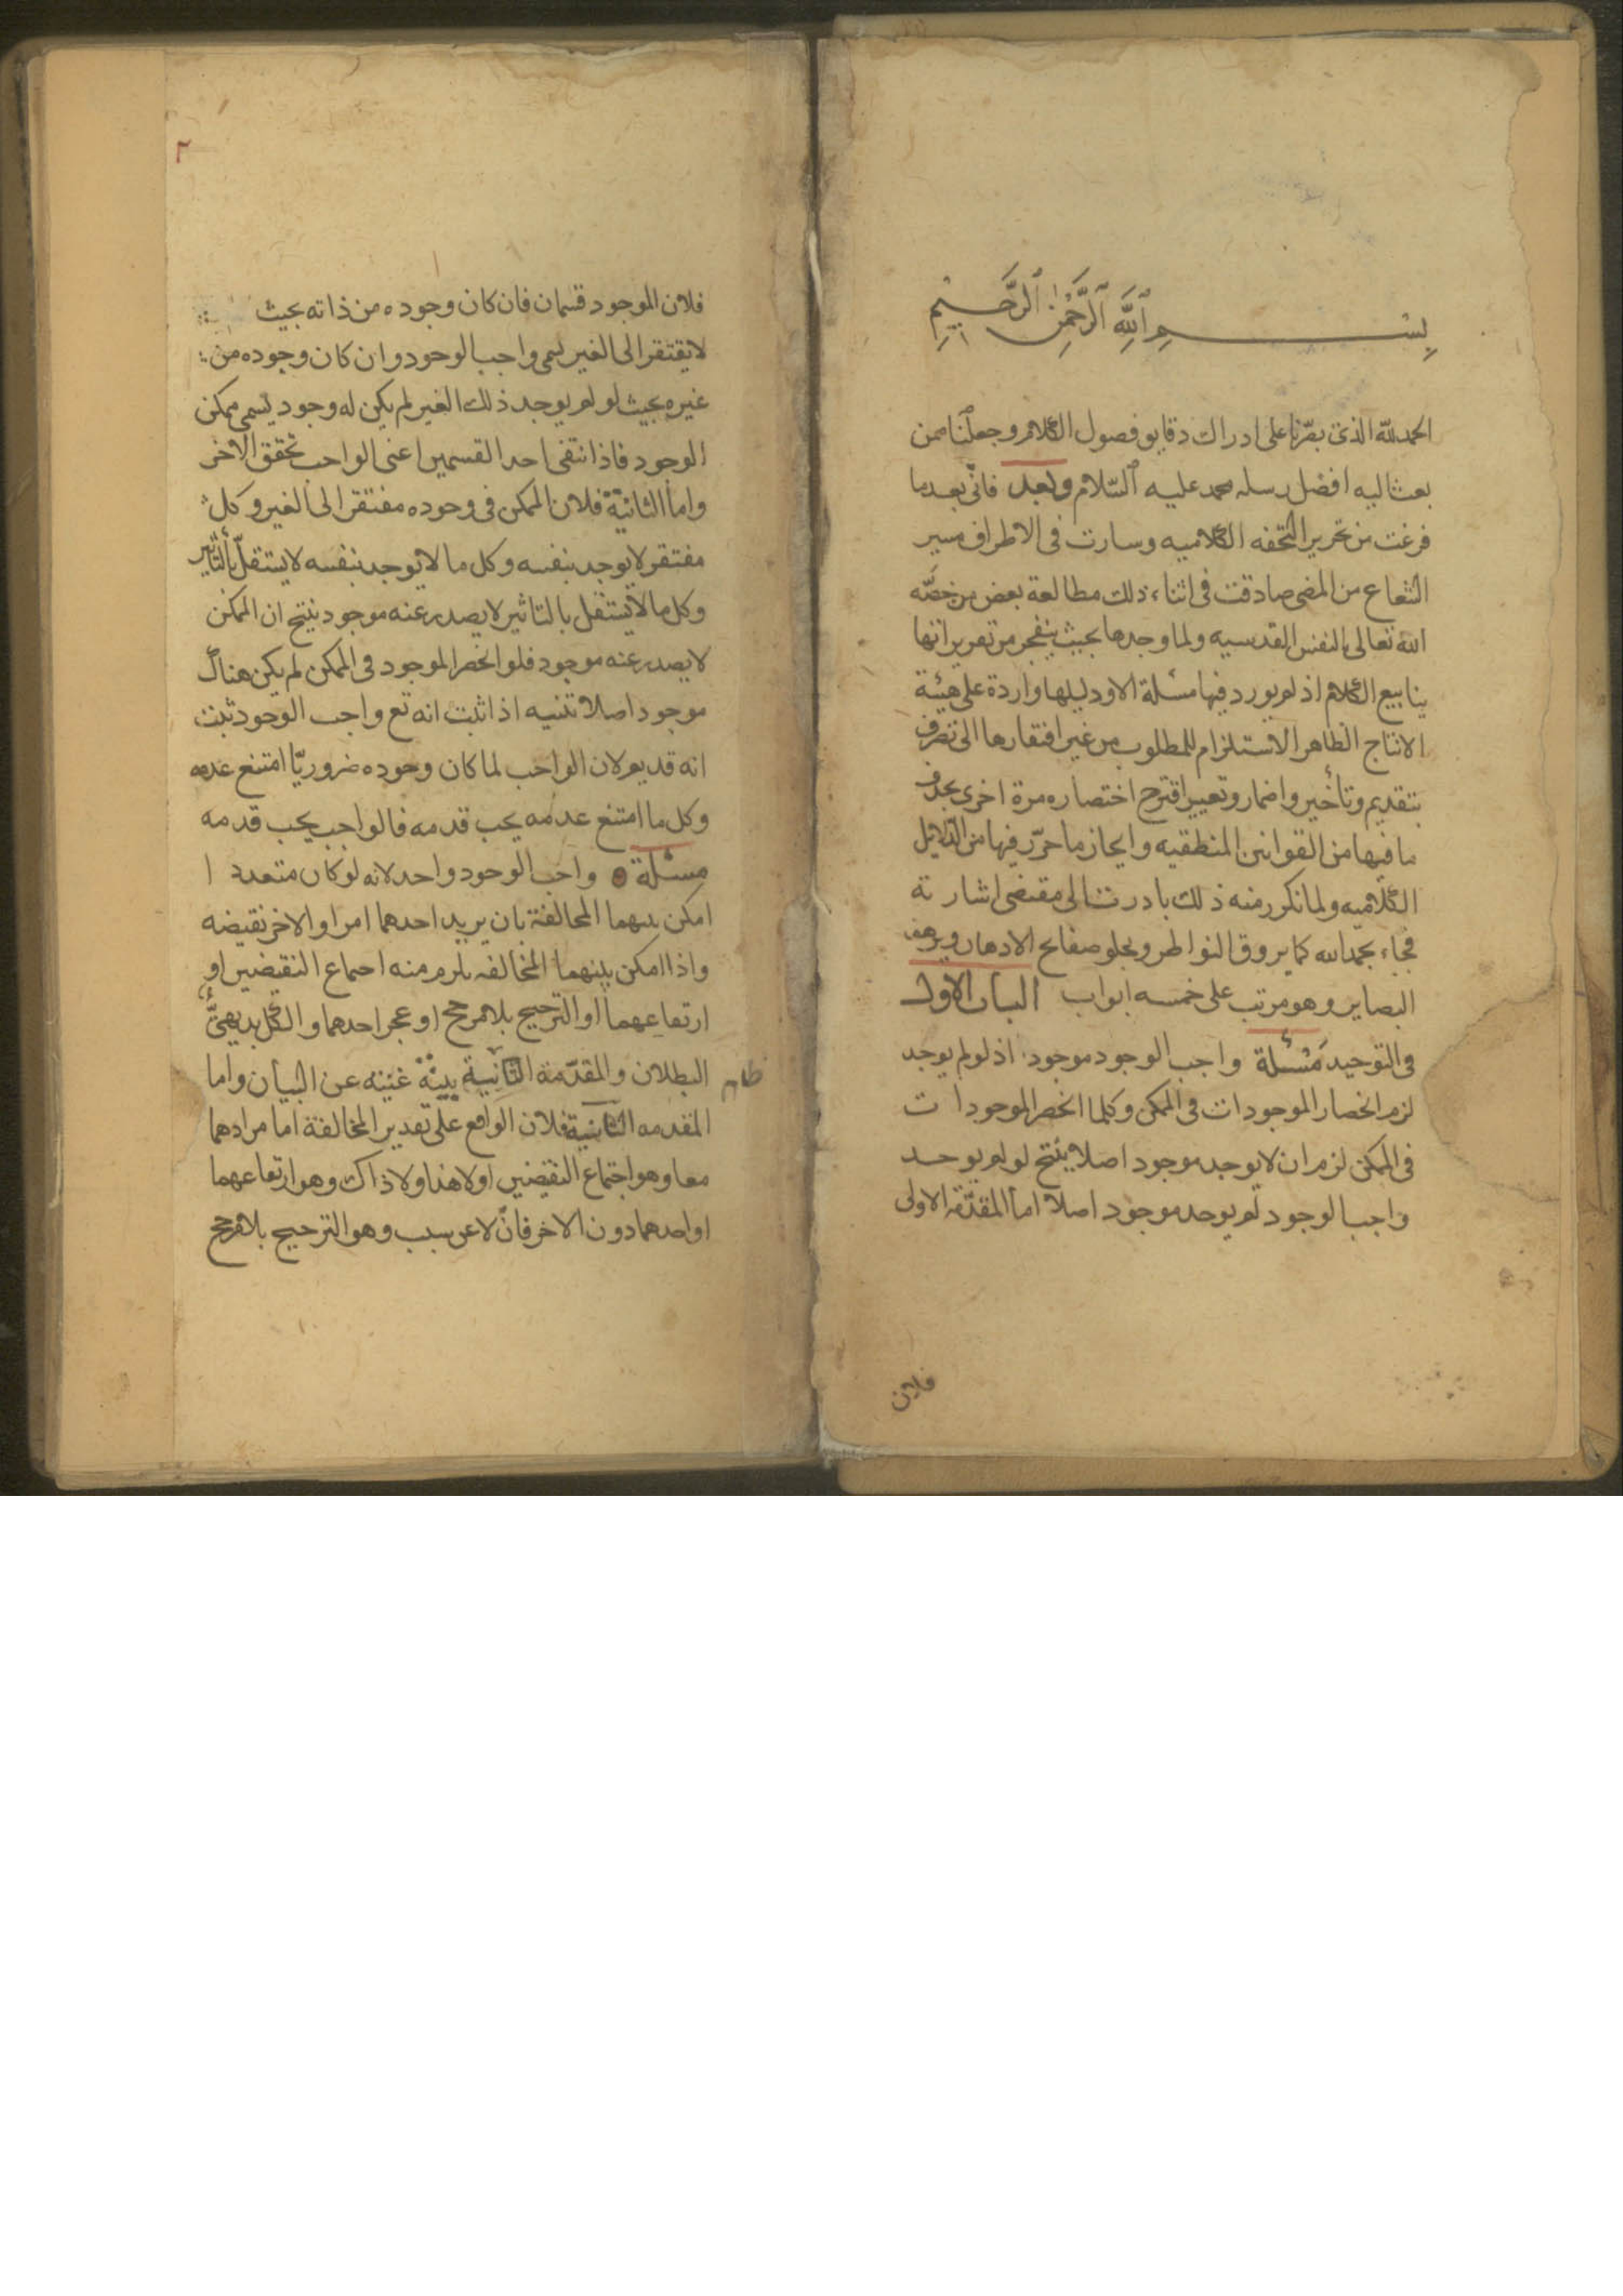 بِسْمِ ٱللَّهِ ٱلرَّحْمٰنِ ٱلرَّحِيمِ
الحمد لله الذى بصّرنا على ادراك دقايق فصول الكلام وجعلنا ممن
بعث اليه افضل رسله محمد عليه السّلام وبعد فانّى بعد ما
فرغت من تحرير التحفه الكلاميه وسارت فى الاطراف مسير
الشعاع من المضى صادفت فى اثناء ذلك مطالعة بعض من خصّه
الله تعالى بالنفس القدسيه ولما وجدها بحيث ينفجر من تعريراتها
ينابيع الكلام اذ لم يورد فيها مسئلة الا ودليلها واردة على هيئة
الانتاج الظاهر الاستلزام للمطلوب من غير افتقارها الى تصرف
بتقديم وتأخير واضمار وتغيير اقترح اختصاره مرة اخرى بحذف
ما فيها من القوانين المنطقيه وايجاز ما حرّر فيها من الدّلايل
الكلاميه ولما تكرر منه ذلك بادرت الى مقتضى اشارته
فجاء بحمد الله كما يروق النواظر ويجلو صفايح الاذهان ويرهف
البصاير وهو مرتب على خمسه ابواب الباب الاول
فى التوحيد مسئلة واجب الوجود موجود اذ لو لم يوجد
لزم انحصار الموجودات فى الممكن وكلما انحصر الموجودات
فى الممكن لزم ان لا يوجد موجود اصلا ينتج لو لم يوجد
واجب الوجود لم يوجد موجود اصلا اما المقدّمة الاولى
فلان
٢
فلان الموجود قسمان فان كان وجوده من ذاته بحيث
لا يفتقر الى الغير يسمى واجب الوجود وان كان وجوده من
غيره بحيث لو لم يوجد ذلك الغير لم يكن له وجود يسمى ممكن
الوجود فاذا انتفى احد القسمين اعنى الواجب تحقق الاخر
واما الثانية فلان الممكن فى وجوده مفتقر الى الغير وكل
مفتقر لا يوجد بنفسه وكل ما لا يوجد بنفسه لا يستقلّ بالتأثير
وكل ما لا يستقل بالتاثير لا يصدر عنه موجود ينتج ان الممكن
لا يصدر عنه موجود فلو انحصر الموجود فى الممكن لم يكن هناك
موجود اصلا تنبيه اذا ثبت انه تع واجب الوجود ثبت
انه قديم لان الواجب لما كان وجوده ضروريّا امتنع عدمه
وكل ما امتنع عدمه يجب قدمه فالواجب يجب قدمه
مسئلة واجب الوجود واحد لانه لو كان متعددا
امكن بينهما المخالفة بان يريد احدهما امرا والاخر نقيضه
واذا امكن بينهما المخالفه يلزم منه اجماع النقيضين او
ارتفاعهما او الترجيح بلا مرجح او عجز احدهما والكل بديهىّ
البطلان والمقدّمة الثانية بينّة غنيه عن البيان واما
المقدمه الثانية فلان الواقع على تقدير المخالفة اما مرادهما
معا وهو اجتماع النقيضين او لا هذا ولا ذاك وهو ارتفاعهما
او احدهما دون الاخر فان لا عن سبب وهو الترجيح بلا مرجح